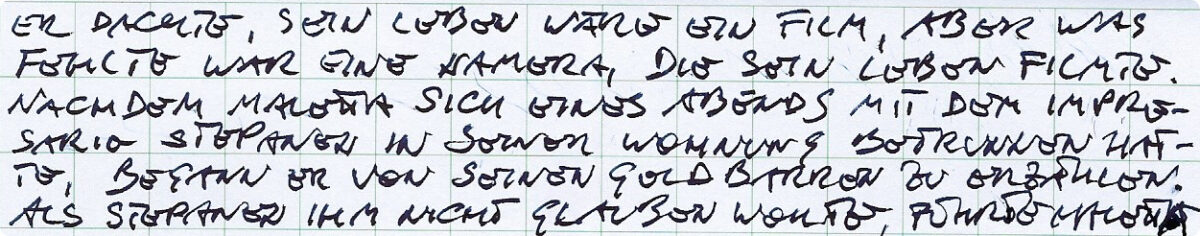 ER DACHTE, SEIN LEBEN WÄRE EIN FILM, ABER WAS
FEHLTE WAR EINE KAMERA, DIE SEIN LEBEN FILMTE.
NACHDEM MALETTA SICH EINES ABENDS MIT DEM IMPRE-
SARIO STEPANEK IN SEINER WOHNUNG BETRUNKEN HAT-
TE, BEGANN ER VON SEINEN GOLDBARREN ZU ERZÄHLEN.
ALS STEPANEK IHM NICHT GLAUBEN WOLLTE, FÜHRTE MALETTA